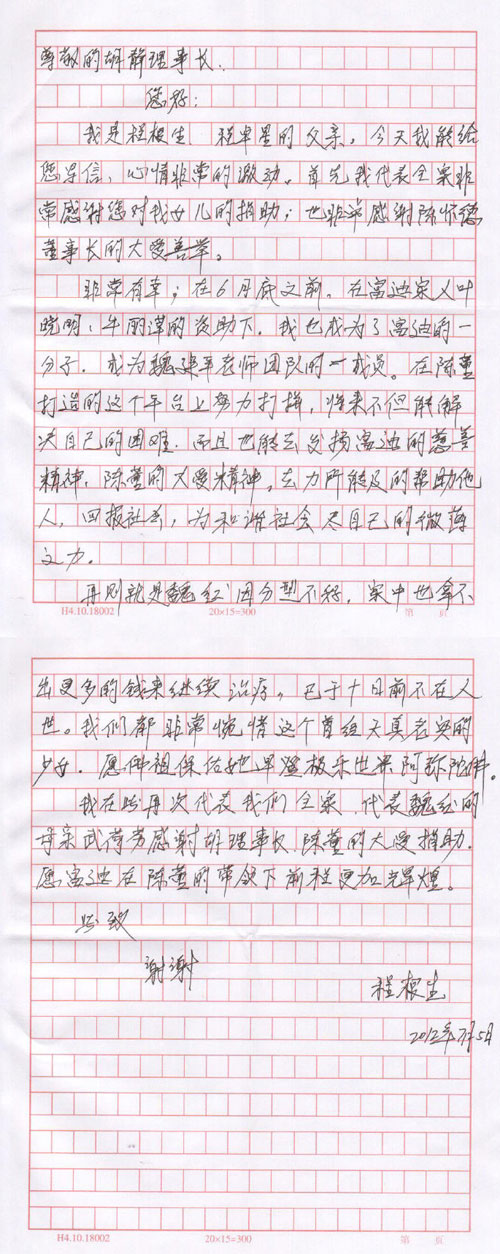 尊敬的胡静理事长.
您好:
我是程根生、程早星的父亲。今天我能给
您写信,心情非常的激动。首先我代表全家非
常感谢您对我女儿的捐助;也非常感谢陈怀德
董事长的大爱善举。
非常有幸;在6月底之前,在富迪家人叶
晓明、牛丽萍的资助下.我也成为了富迪的一
分子.成为魏建平老师团队的一成员。在陈董
打造的这个平台上努力打拼,将来不但能解
决自己的困难.而且也能去发扬富迪的慈善
精神,陈董的大爱精神。去力所能及的帮助他
人,回报社会,为和谐社会尽自己的微薄
之力.
再则就是魏红因分型不好,家中也拿不
H4.10.18002 20×15=300 第 页
出更多的钱来继续治疗。已于十日前不在人
世。我们都非常惋惜这个曾经天真老实的
少女.愿佛祖保佑她早登极乐世界阿弥陀佛。
我在此再次代表我们全家.代表魏红的
母亲武荷芳感谢胡理事长、陈董的大爱捐助.
愿富迪在陈董的带领下前程更加辉煌。
此致
谢谢
程根生
2012年7月5日
H4.10.18002 20×15=300 第 页